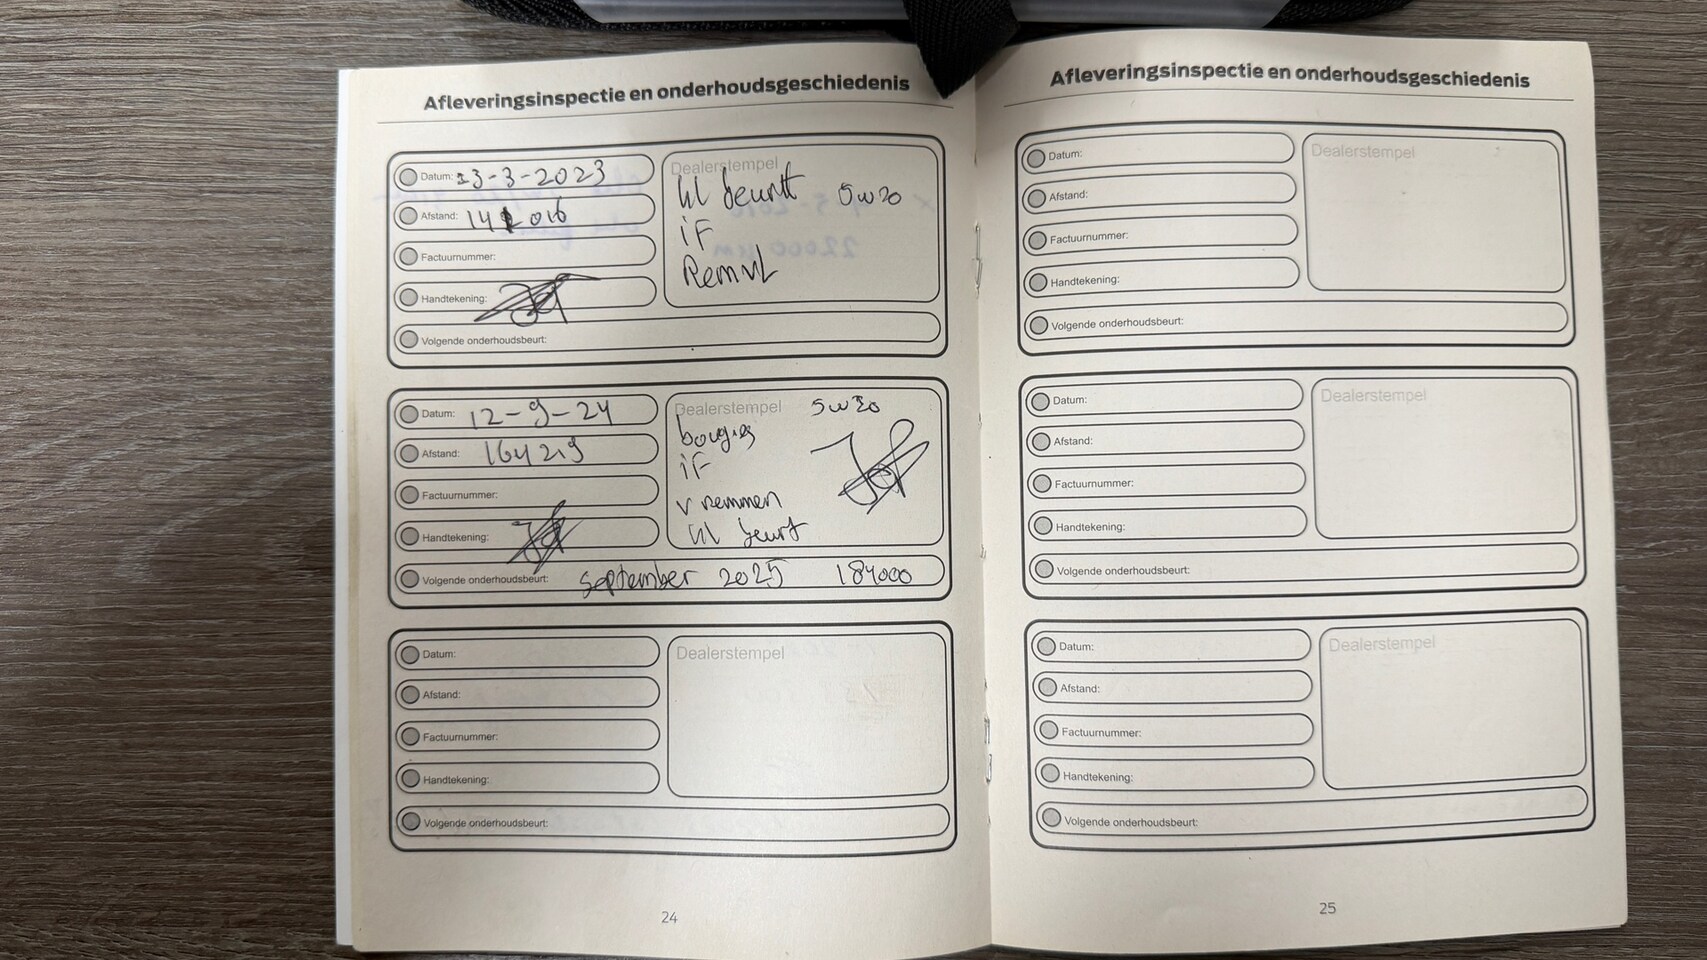 Afleveringsinspectie en onderhoudsgeschiedenis
Datum: 23-3-2023
Afstand: 142016
Factuurnummer:
Handtekening:
Dealerstempel
kl beurt 5w20
iF
Remvl
Volgende onderhoudsbeurt:
Datum: 12-9-24
Afstand: 164219
Factuurnummer:
Handtekening:
Dealerstempel 5w20
bougies
iF
v remmen
kl beurt
Volgende onderhoudsbeurt: september 2025 184000
Datum:
Afstand:
Factuurnummer:
Handtekening:
Dealerstempel
Volgende onderhoudsbeurt:
24
Afleveringsinspectie en onderhoudsgeschiedenis
Datum:
Afstand:
Factuurnummer:
Handtekening:
Dealerstempel
Volgende onderhoudsbeurt:
Datum:
Afstand:
Factuurnummer:
Handtekening:
Dealerstempel
Volgende onderhoudsbeurt:
Datum:
Afstand:
Factuurnummer:
Handtekening:
Dealerstempel
Volgende onderhoudsbeurt:
25